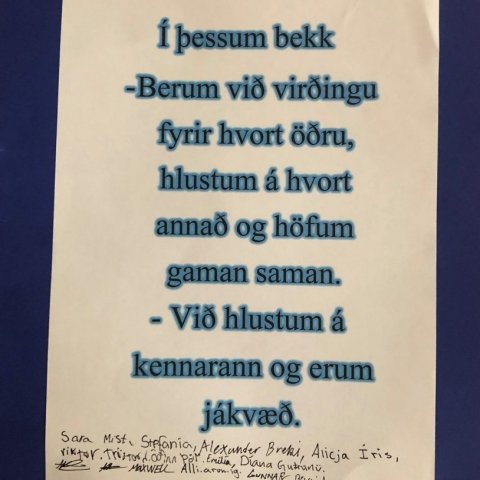 Í þessum bekk
-Berum við virðingu
fyrir hvort öðru,
hlustum á hvort
annað og höfum
gaman saman.
- Við hlustum á
kennarann og erum
jákvæð.
Sara Mist, Stefanía, Alexander Breki, Alicja Íris,
viktor. Emilía, Diana
MAXWELL Alli. GUNNAR